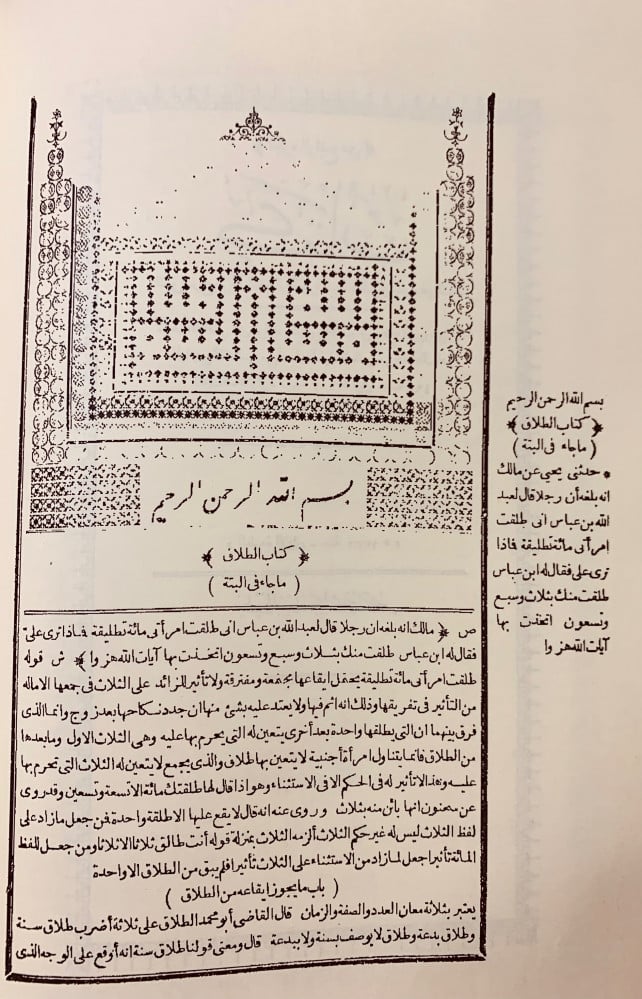 بسم الله الرحمن الرحيم
﴿ كتاب الطلاق ﴾
( ماجاء فى البتة )
ص ﴿ مالك انه بلغه ان رجلا قال لعبد الله بن عباس انى طلقت امرأتى مائة تطليقة فماذا ترى على
فقال له ابن عباس طلقت منك بثلاث وسبع وتسعون اتخذت بها آيات الله هزوا ﴾ ش قوله
طلقت امرأتى مائة تطليقة يحتمل ايقاعها مجتمعة ومفترقة ولا تأثير للزائد على الثلاث فى جمعها الاماله
من التأثير فى تفريقها وذلك انه اثم فيها ولا يعتد عليه بشئ منها ان جدد نكاحها بعد زوج وانما الذى
فرق بينهما ان التى يطلقها واحدة بعد أخرى يتعين له التى يحرم بها عليه وهى الثلاث الاول وما بعدها
من الطلاق فانما يتناول امرأة أجنبية لا يتعين بها طلاق والذى يجمع لا يتعين له الثلاث التى تحرم بها
عليه وهذا لا تأثير له فى الحكم الا فى الاستثناء وهو اذا قال لها طلقتك مائة الا تسعة وتسعين وقد روى
عن سحنون انها بائن منه بثلاث وروى عنه انه قال لا يقع عليها الا طلقة واحدة فمن جعل ما زاد على
لفظ الثلاث ليس له غير حكم الثلاث ألزمه الثلاث بمنزلة قوله أنت طالق ثلاثا الا ثلاثا ومن جعل للفظ
المائة تأثيرا جعل لما زاد من الاستثناء على الثلاث تأثيرا فلم يبق من الطلاق الا واحدة
( باب ما يجوز ايقاعه من الطلاق )
يعتبر بثلاثة معان العدد والصفة والزمان قال القاضى أبو محمد الطلاق على ثلاثة أضرب طلاق سنة
وطلاق بدعة وطلاق لا يوصف بسنة ولا ببدعة قال ومعنى قولنا طلاق سنة انه أوقع على الوجه الذى
بسم الله الرحمن الرحيم
﴿ كتاب الطلاق ﴾
( ماجاء فى البتة )
* حدثنى يحيى عن مالك
انه بلغه أن رجلا قال لعبد
الله بن عباس انى طلقت
امرأتى مائة تطليقة فماذا
ترى على فقال له ابن عباس
طلقت منك بثلاث وسبع
وتسعون اتخذت بها
آيات الله هزوا